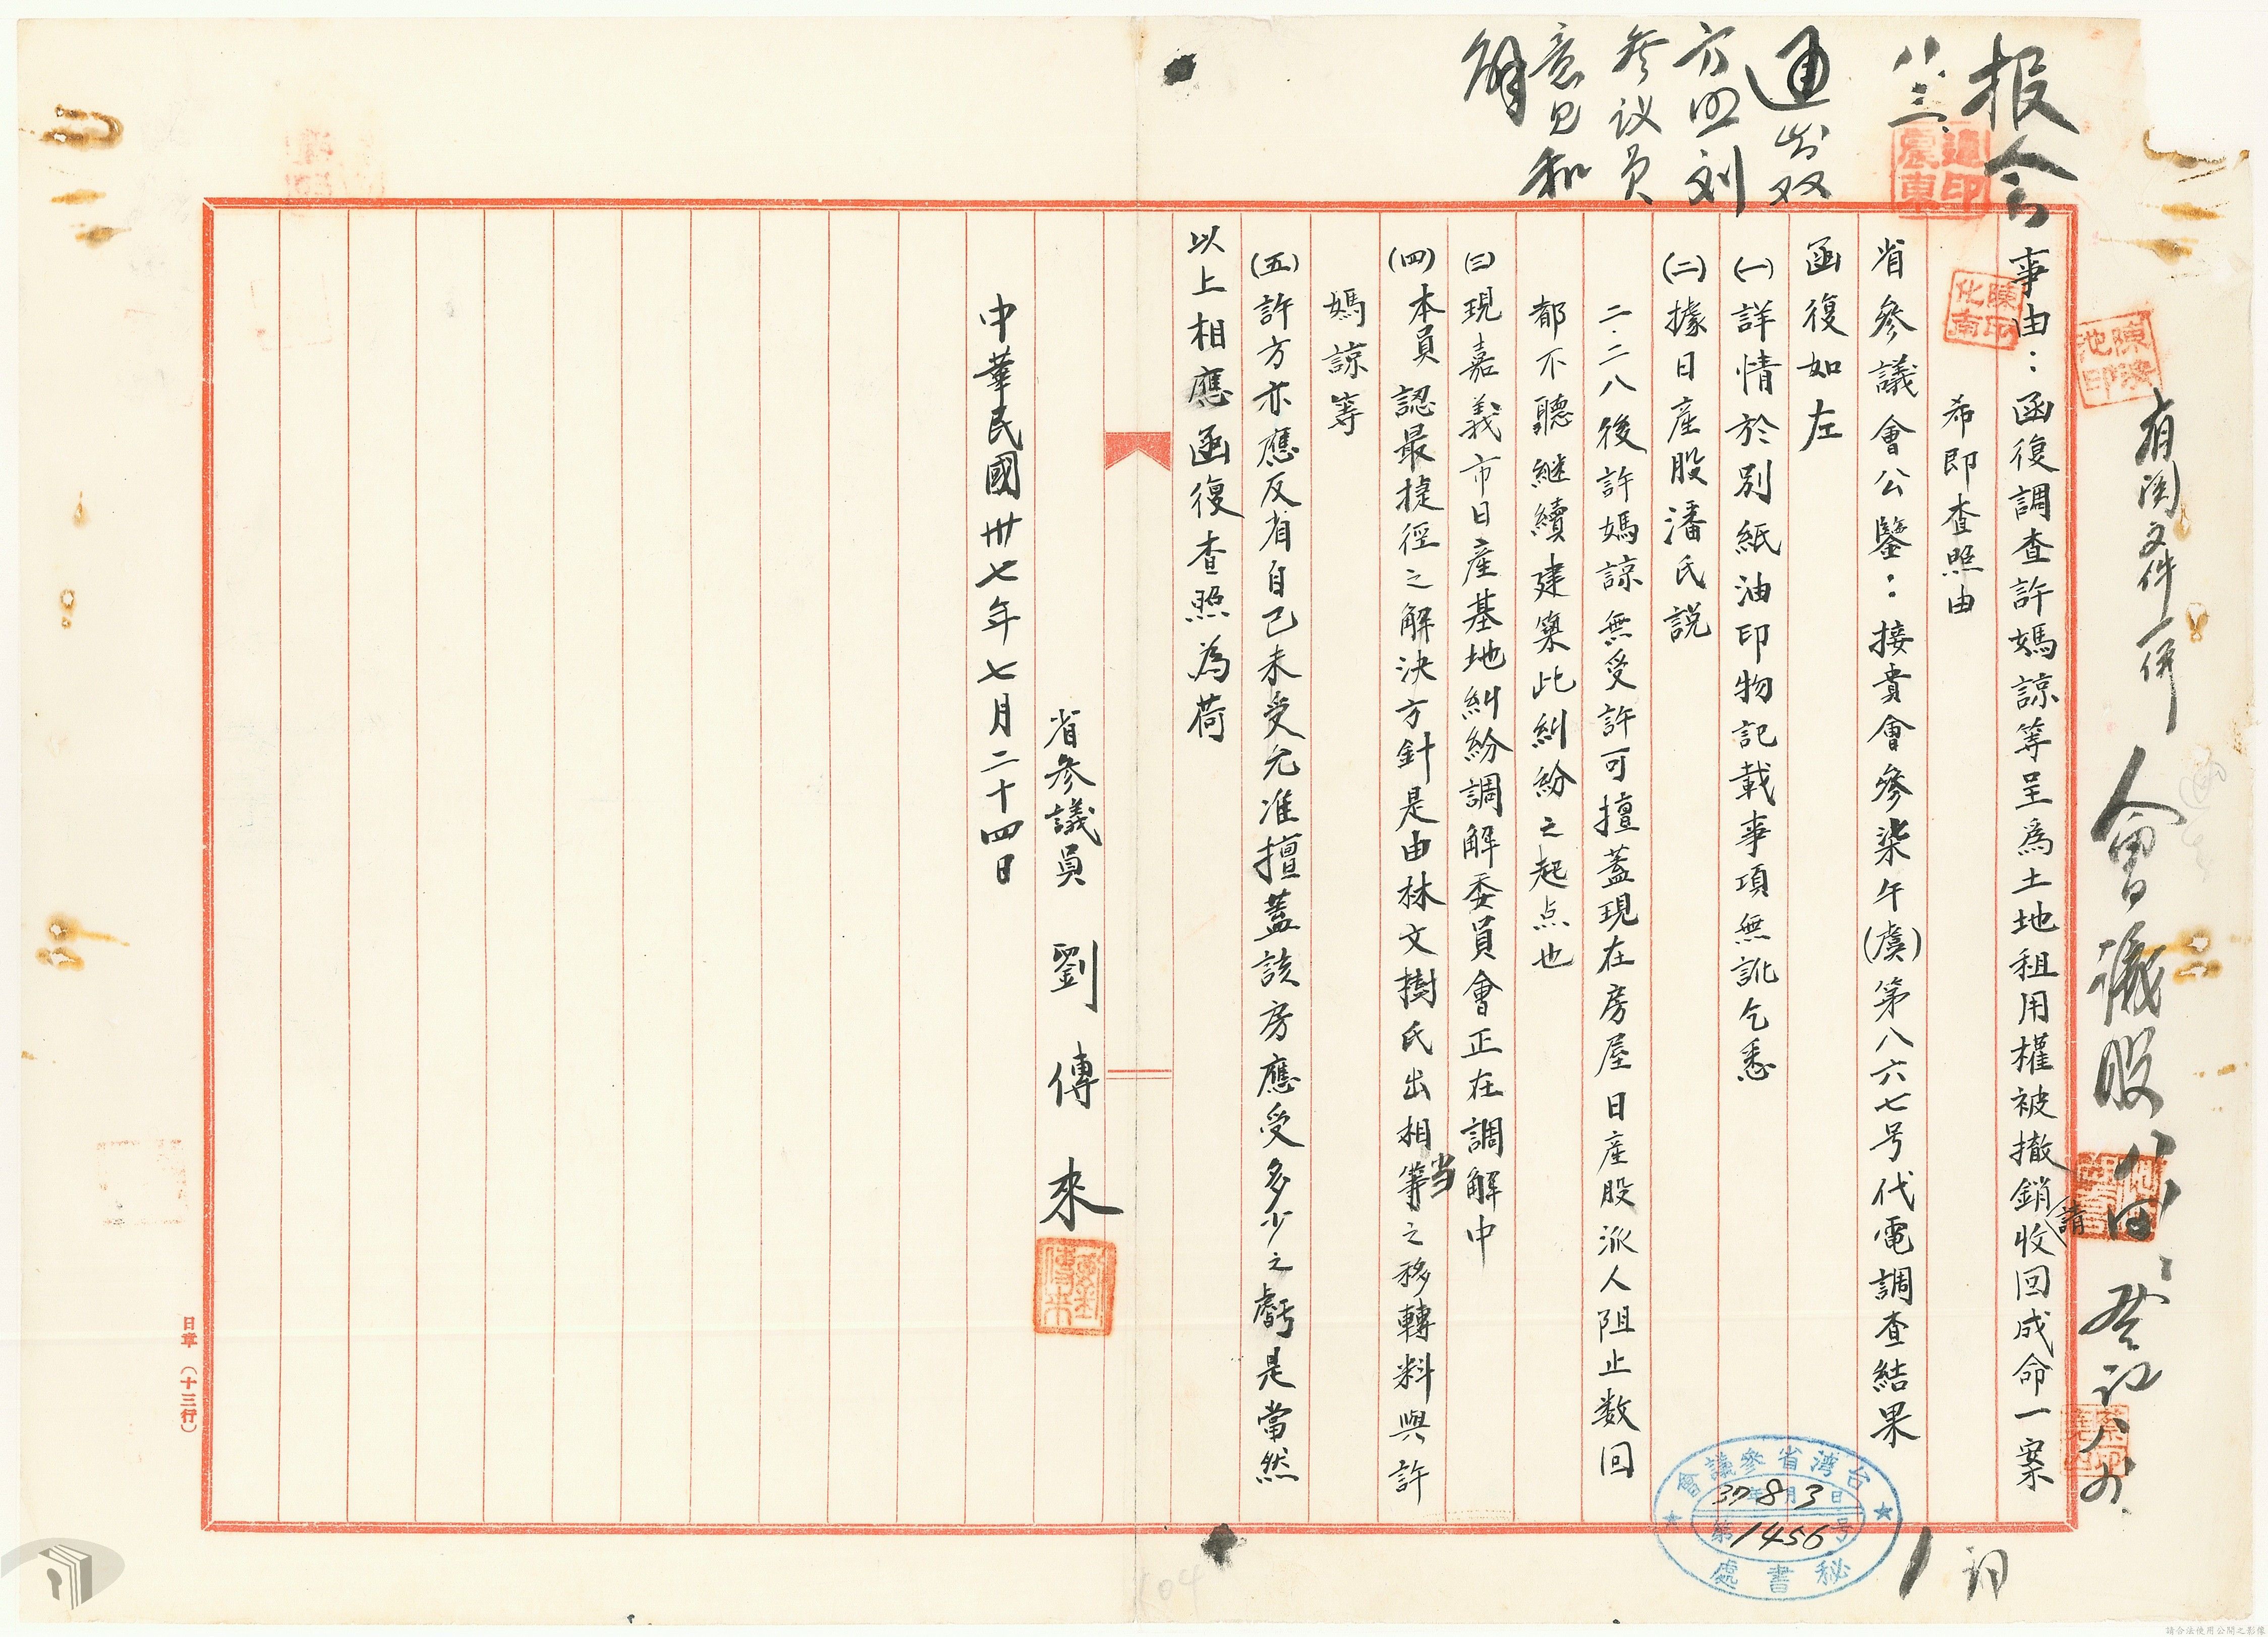 事由：函復調查許媽諒等呈爲土地租用權被撤銷請收回成命一案
希即查照由
省參議會公鑒：接貴會參柒午(虞)第八六七号代電調查結果
函復如左
(一)詳情於別紙油印物記載事項無訛乞悉
(二)據日産股潘氏説
二.二八後許媽諒無受許可擅蓋現在房屋日産股派人阻止数回
都不聽継續建築此糾紛之起点也
(三)現嘉義市日産基地糾紛調解委員會正在調解中
(四)本員認最捷徑之解決方針是由林文樹氏出相當等之移轉料與許
媽諒等
(五)許方亦應反省自己未受允准擅蓋該房應受多少之虧是當然
以上相應函復查照為荷
省參議員 劉傳來
中華民國卅七年七月二十四日
报会
八.三.
通知双
方以刘
参议员
意見和
解
有関文件一併
會議股
登記
陳印化南
台灣省參議會
37年8月3日
第1456号
秘書處
日章 (十三行)
K04
請合法使用公開之影像